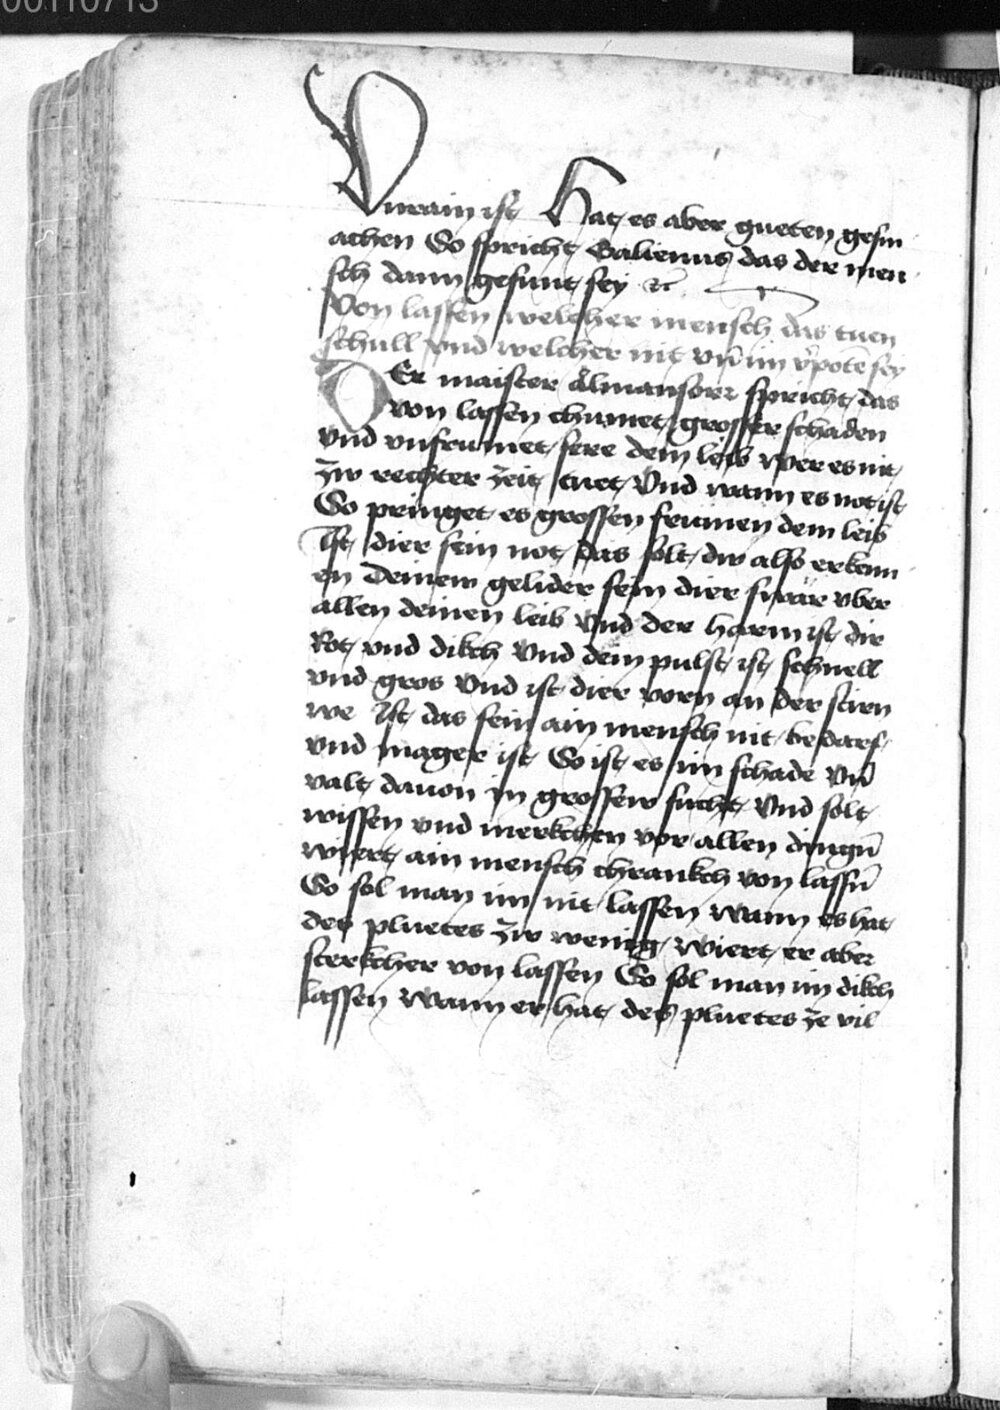 00110713
Vnrain ist Hat es aber gueten gesm
achen So spricht Galienus das der men
sch dann gesunt sey etc
Von lassen welcher mensch das tuen
schull vnd welcher nit vn̄ im v̓poten sey
DEr maister Almansorr spricht das
von lassen chumet grosser schaden
vnd vnfrumet sere dem leib wer es nit
zw rechter zeit tuet Vnd wann es not ist
So pringet es grossen frumen dem leib
Ist dier sein not das solt dw also erkenn
en Deinem gelider sein dier swär vber
allen deinen leib Vnd der harm ist dir
Rot vnd dikch Vnd dein pulst ist schnell
vnd gros Vnd ist dier vorn an der stirn
we Ist das sein ain mensch nit bedarf
vnd mager ist So ist es im schade vn̄
valt dauon in grossew sucht Vnd solt
wissen vnd merkchen vor allen dingn̄
wiert ain mensch chrankch von lassn̄
So sol man im nit lassen wann es hat
des pluetes zw wenig wiert er aber
sterkcher von lassen So sol man im dikch
lassen wann er hat des pluetes ze vil